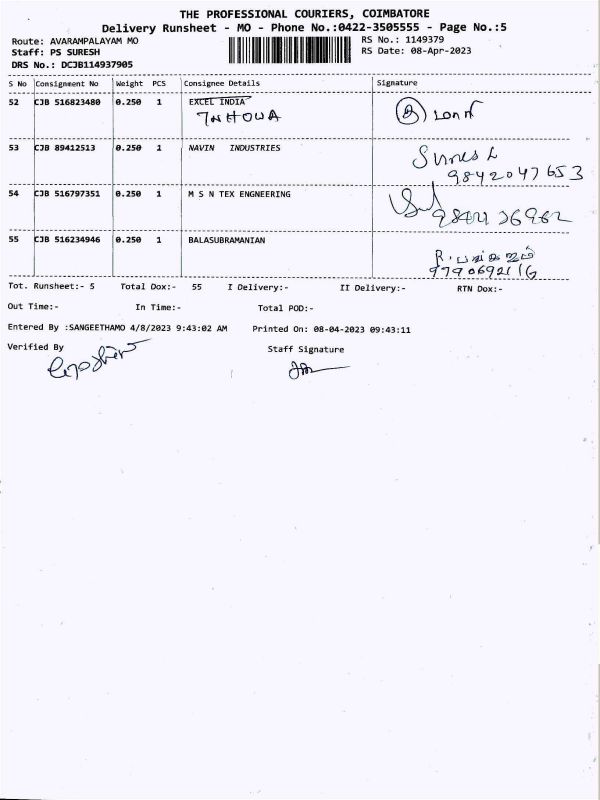 THE PROFESSIONAL COURIERS, COIMBATORE
Delivery Runsheet - MO - Phone No.:0422-3505555 - Page No.:5
Route: AVARAMPALAYAM MO RS No.: 1149379
Staff: PS SURESH RS Date: 08-Apr-2023
DRS No.: DCJB114937905
S No Consignment No Weight PCS Consignee Details Signature
52 CJB 516823480 0.250 1 EXCEL INDIA
53 CJB 89412513 0.250 1 NAVIN INDUSTRIES Suresh
9842047653
54 CJB 516797351 0.250 1 M S N TEX ENGNEERING
55 CJB 516234946 0.250 1 BALASUBRAMANIAN
Tot. Runsheet:- 5 Total Dox:- 55 I Delivery:- II Delivery:- RTN Dox:-
Out Time:- In Time:- Total POD:-
Entered By :SANGEETHAMO 4/8/2023 9:43:02 AM Printed On: 08-04-2023 09:43:11
Verified By Staff Signature